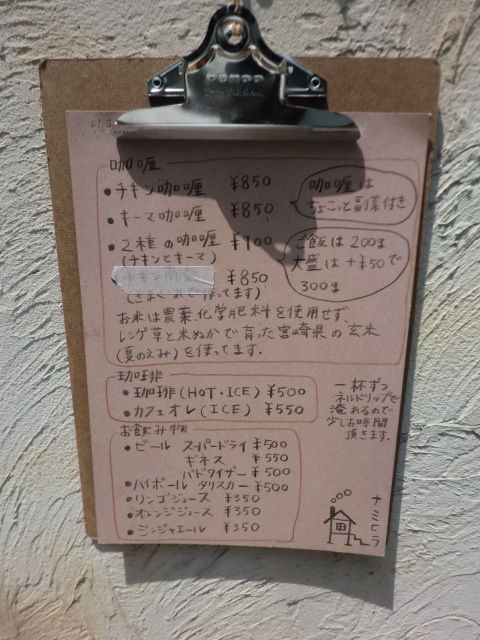 咖喱
• チキン咖喱 ¥850
• キーマ咖喱 ¥850
• 2種の咖喱 ¥900
(チキンとキーマ)
¥850
お米は農薬、化学肥料を使用せず、
レンゲ草と米ぬかで育った宮崎県の玄米
(夏のえみ)を使ってます。
咖喱は
ちょこっと副菜付き
ご飯は200g
大盛は+¥50で
300g
珈琲
• 珈琲(HOT・ICE) ¥500
• カフェオレ(ICE) ¥550
一杯ずつ
ネルドリップで
淹れるので
少しお時間
頂きます。
お飲み物
• ビール スーパードライ ¥500
ギネス ¥550
バドワイザー ¥500
• ハイボール タリスカー ¥500
• リンゴジュース ¥350
• オレンジジュース ¥350
• ジンジャエール ¥350
ナミヒラ